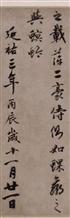 之載萍二豪侍側焉如蜾蠃之
與螟蛉
延祐三年丙辰歲十一月廿一